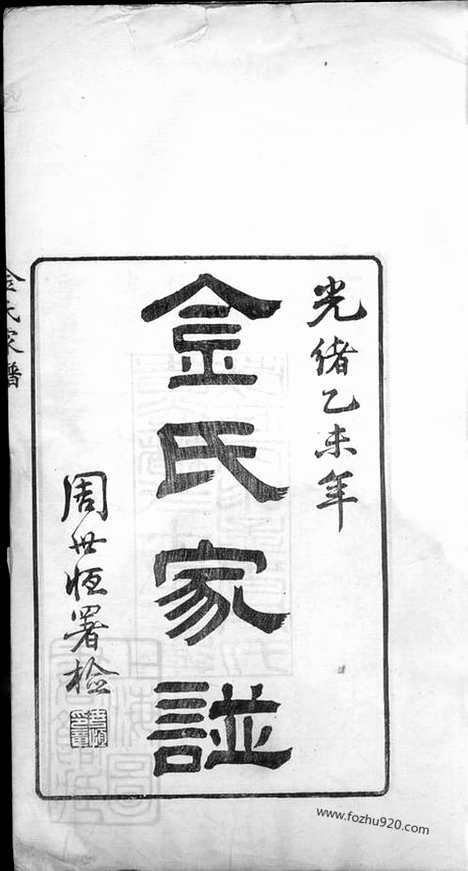 光緒乙未年
金氏家譜
周世恆署檢
金氏家譜
www.fozhu920.com